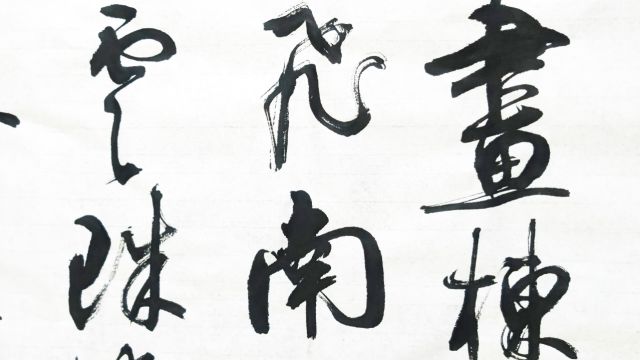 畫棟
飛南
雲珠